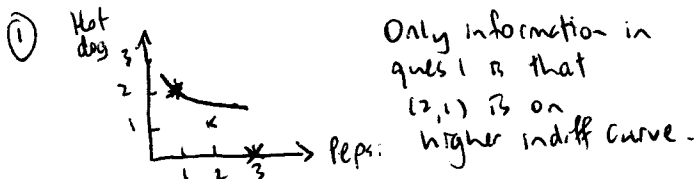 ① Hot
dog
3
2
1
1 2 3
Pepsi
Only information in
ques 1 is that
(2,1) is on
higher indiff curve.